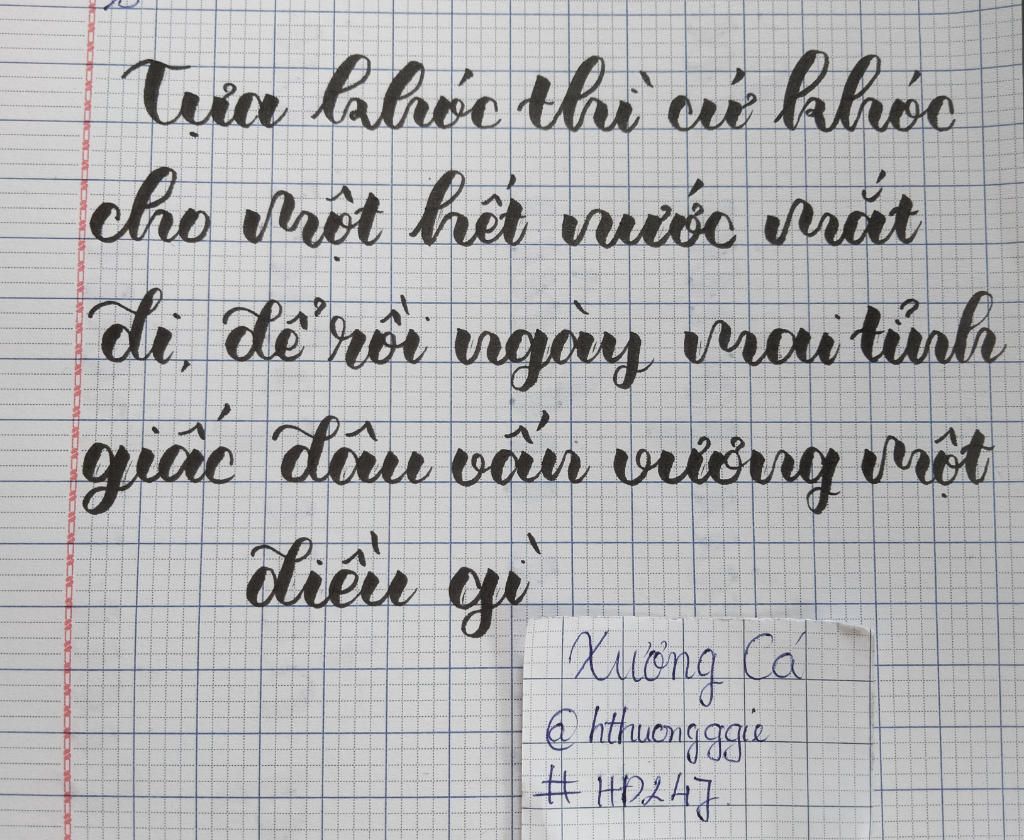 Tựa khóc thì cứ khóc
cho một hết nước mắt
đi, để rồi ngày mai tỉnh
giấc đâu vấn vương một
điều gì
Xương Cá
@hthuongggie
#HD247